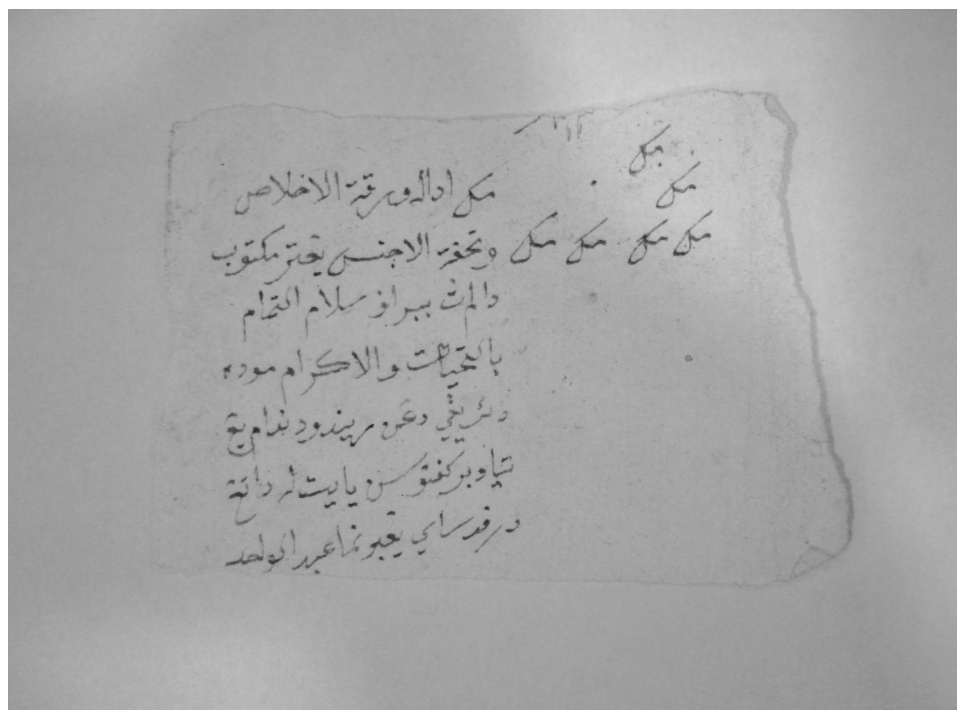 مک
مک
مک اداله ورقة الاخلاص
مک مک مک مک وتحفة الاجنس يڠتر مکتوب
دالمڽ ببراف سلام التمام
بالتحيات والاکرام موده
دڠن ريندو دندام يڠ
تياد برکفتوسن يايت له داتڠ
درفد ساي يڠبرنما عبد الواحد